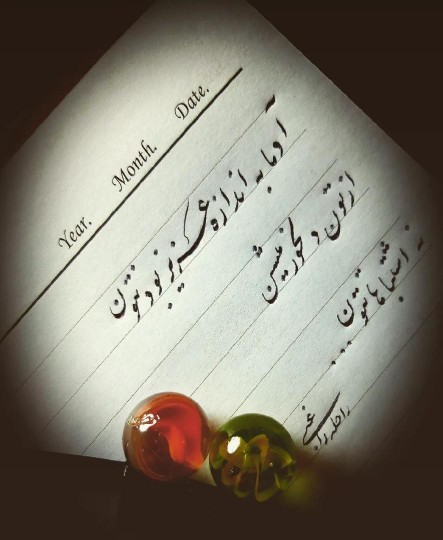 Year. Month. Date.
آدما به اندازه عزیز بودنتون
ازتون دلخور میشن
نه اشتباهاتتون ...
راحله